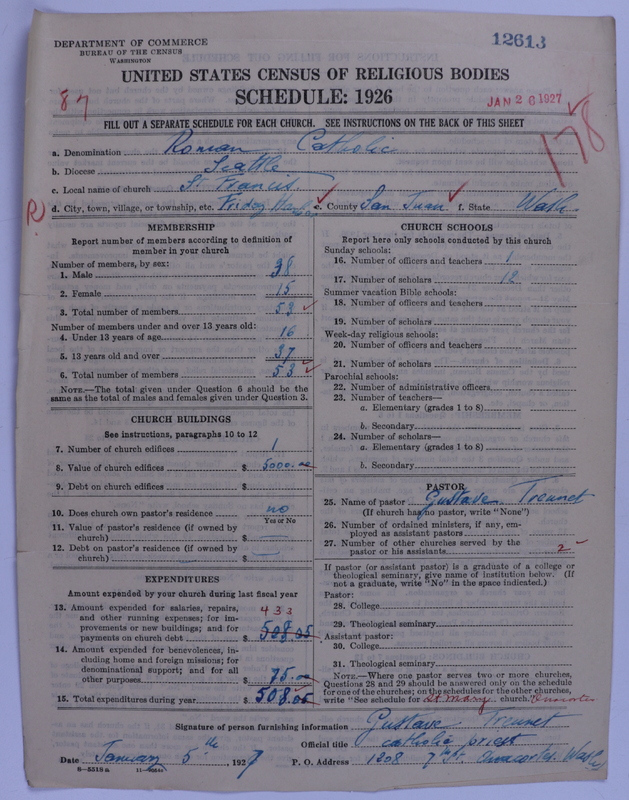 DEPARTMENT OF COMMERCE
BUREAU OF THE CENSUS
WASHINGTON
12613
UNITED STATES CENSUS OF RELIGIOUS BODIES
SCHEDULE: 1926
87
JAN 26 1927
178
FILL OUT A SEPARATE SCHEDULE FOR EACH CHURCH. SEE INSTRUCTIONS ON THE BACK OF THIS SHEET
a. Denomination Roman Catholic
b. Diocese Seattle
c. Local name of church St Francis
R d. City, town, village, or township, etc. Friday Harbor e. County San Juan f. State Wash
MEMBERSHIP
Report number of members according to definition of
member in your church
Number of members, by sex:
1. Male 38
2. Female 15
3. Total number of members 53
Number of members under and over 13 years old:
4. Under 13 years of age 16
5. 13 years old and over 37
6. Total number of members 53
NOTE.—The total given under Question 6 should be
same as the total of males and females given under Question 3.
CHURCH BUILDINGS
See instructions, paragraphs 10 to 12
7. Number of church edifices 1
8. Value of church edifices $ 5000.00
9. Debt on church edifices $
10. Does church own pastor's residence no
Yes or No
11. Value of pastor's residence (if owned by
church) $ —
12. Debt on pastor's residence (if owned by
church) $ —
EXPENDITURES
Amount expended by your church during last fiscal year
13. Amount expended for salaries, repairs, 433
and other running expenses; for im-
provements or new buildings; and for
payments on church debt $ 508.05
14. Amount expended for benevolences, in-
cluding home and foreign missions; for
denominational support; and for all
other purposes $ 75.00
15. Total expenditures during year $ 508.05
CHURCH SCHOOLS
Report here only schools conducted by this church
Sunday schools:
16. Number of officers and teachers 1
17. Number of scholars 12
Summer vacation Bible schools:
18. Number of officers and teachers
19. Number of scholars
Week-day religious schools:
20. Number of officers and teachers
21. Number of scholars
Parochial schools:
22. Number of administrative officers
23. Number of teachers—
a. Elementary (grades 1 to 8)
b. Secondary
24. Number of scholars—
a. Elementary (grades 1 to 8)
b. Secondary
PASTOR
25. Name of pastor Gustave Treunet
(If church has no pastor, write "None")
26. Number of ordained ministers, if any, em-
ployed as assistant pastors
27. Number of other churches served by the
pastor or his assistants 2
If pastor (or assistant pastor) is a graduate of a college or
theological seminary, give name of institution below. (If
not a graduate, write "No" in the space indicated.)
Pastor:
28. College
29. Theological seminary
Assistant pastor:
30. College
31. Theological seminary
NOTE.—Where one pastor serves two or more churches,
Questions 28 and 29 should be answered only on the schedule
for one of the churches; on the schedules for the other churches,
write "See schedule for St Mary church." Anacortes
Signature of person furnishing information Gustave Treunet
Official title catholic priest
Date January 5th, 1927 P. O. Address 1208 7th St. Anacortes Wash
6-5519a